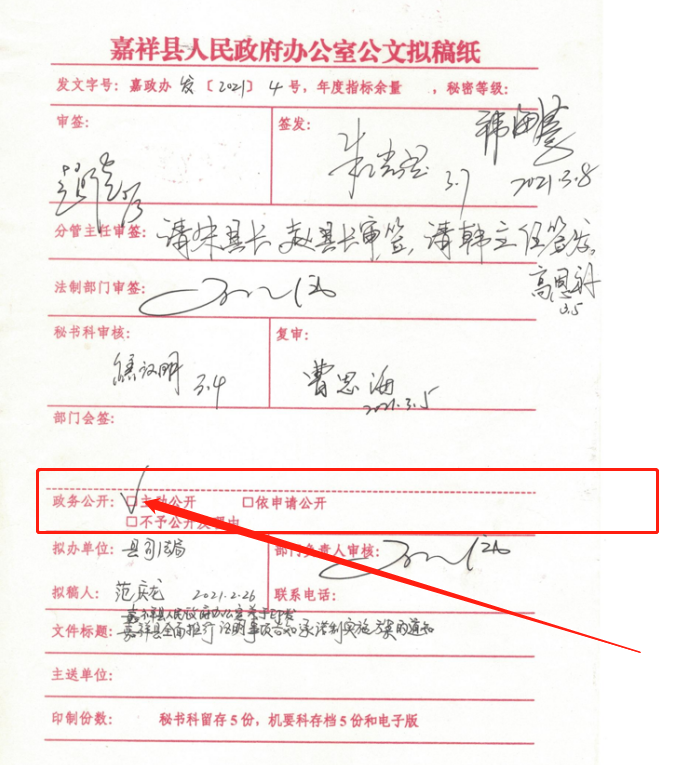 嘉祥县人民政府办公室公文拟稿纸
发文字号：嘉政办 发〔2021〕 4 号，年度指标余量 ，秘密等级：
审签：
签发：
3.7
2021.3.8
分管主任审签：请宋县长、赵县长审签，请韩主任签发。
3.5
法制部门审签：
秘书科审核：
3.4
复审：
曹思海
2021.3.5
部门会签：
政务公开：□主动公开 □依申请公开
□不予公开及理由
拟办单位：县司法局
部门负责人审核：
拟稿人：范庆龙 2021.2.26
联系电话：
嘉祥县人民政府办公室关于印发
文件标题：嘉祥县全面推行证明事项告知承诺制实施方案的通知
主送单位：
印制份数： 秘书科留存5份，机要科存档5份和电子版